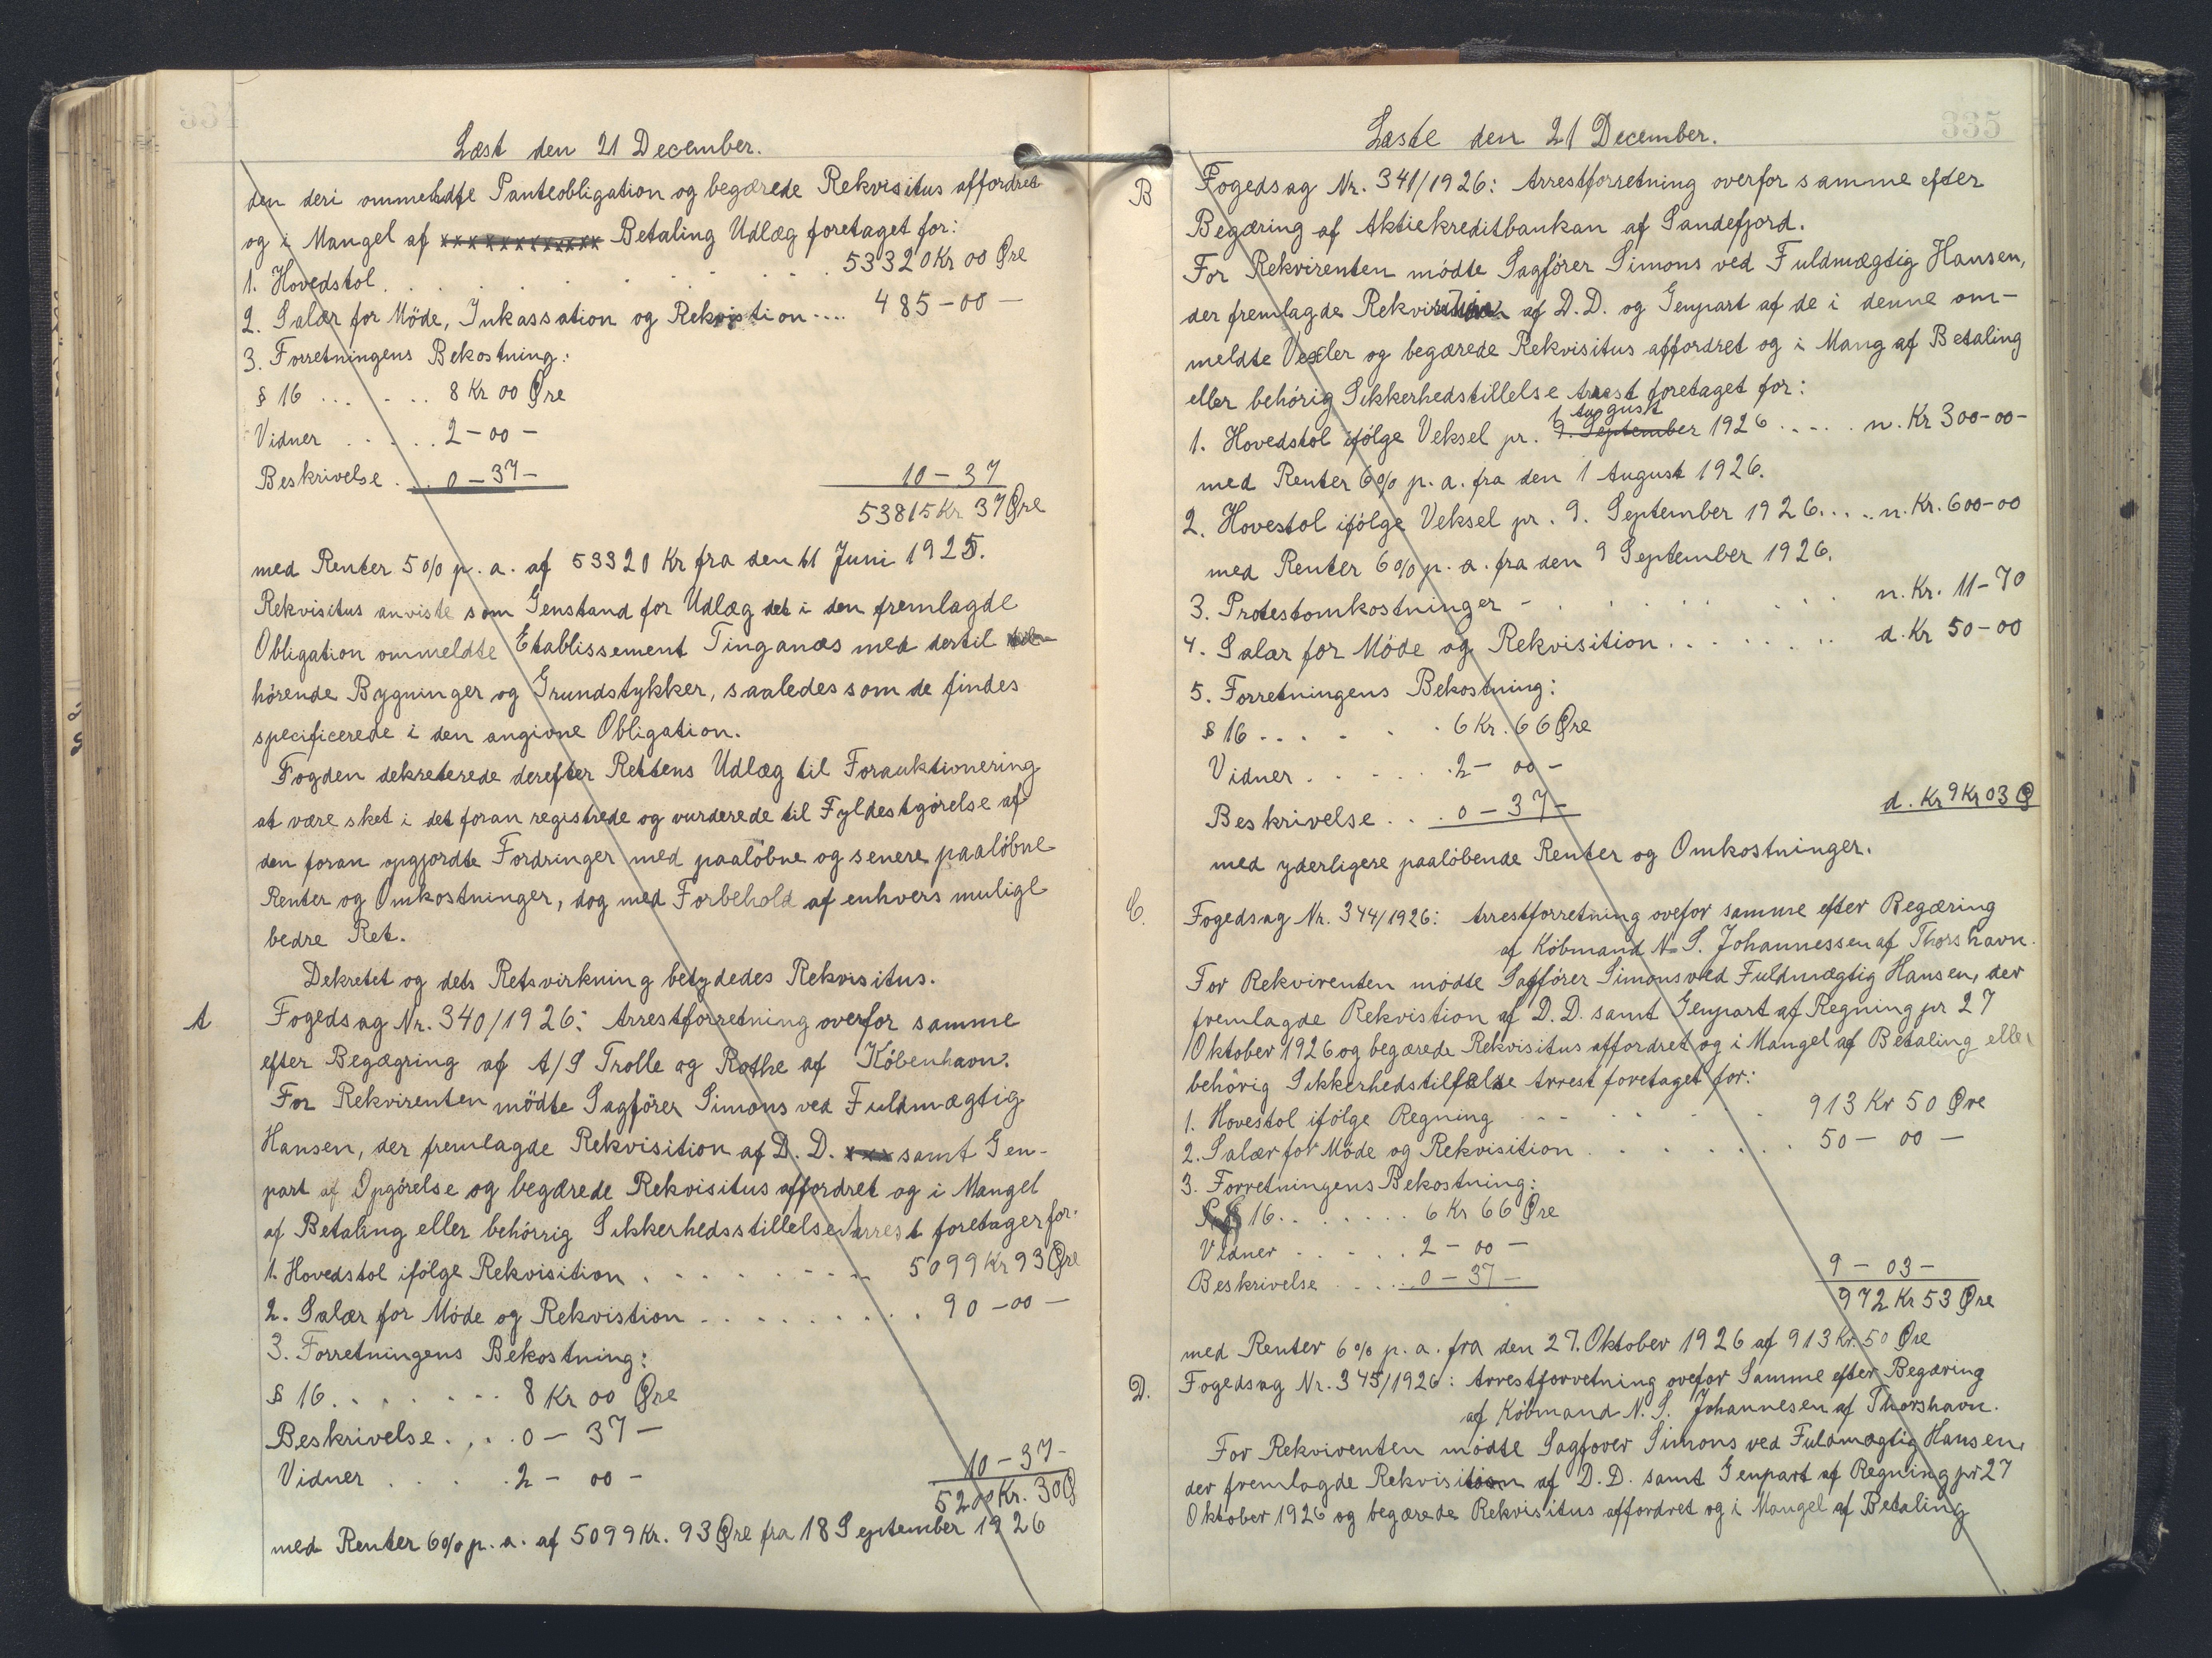 Læst den 21 December.
den deri ommeldte Panteobligation og begærede Rekvisitus affordret
og i Mangel af Betaling Udlæg foretaget for:
1. Hovedstol . . . . . . . 53320 Kr 00 Øre
2. Salær for Möde, Inkassation og Rekvistion .... 485-00 —
3. Forretningens Bekostning:
§ 16 ... . .. 8 Kr 00 Øre
Vidner . . . . . 2-00 -
Beskrivelse . . . 0-37- 10-37
53815 Kr 37 Øre
med Renter 5% p. a. af 53320 Kr fra den 11 Juni 1925.
Rekvisitus anviste som Genstand for Udlæg det i den fremlagde
Obligation ommeldte Etablissement Tinganæs med dertil
hörende Bygninger og Grundstykker, saaledes som de findes
specificerede i den angivne Obligation.
Fogden dekreterede derefter Rettens Udlæg til Forauktionering
at være sket i det foran registrede og vurderede til Fyldestgörelse af
den foran opgjordte Fordringer med paalöbne og senere paalöbne
Renter og Omkostninger, dog med Forbehold af enhvers mulige
bedre Ret.
Dekretet og dets Retsvirkning betydedes Rekvisitus.
A Fogedsag Nr. 340/1926: Arrestforretning overfor samme
efter Begægring af A/S Trolle og Rothe af Köbenhavn.
For Rekvirenten mödte Sagförer Simons ved Fuldmægtig
Hansen, der fremlagde Rekvisition af D. D. samt Gen-
part af Opgörelse og begærede Rekvisitus affordret og i Mangel
af Betaling eller behörrig Sikkerhedsstillelse Arrest foretager for:
1. Hovedstol ifölge Rekvisition . . . . . . . . 5099 Kr 93 Øre
2. Salær for Möde og Rekvistion . . . . . . . . . 90-00 —
3. Forretningens Bekostning:
§ 16. . . . . . . . 8 Kr 00 Øre
Beskrivelse . . . . 0 - 37 -
Vidner . . . . . 2 - 00 - 10-37-
5200 Kr. 30 Ø
med Renter 6% p. a. af 5099 Kr. 93 Øre fra 18 September 1926
335
Læste den 21 December.
B Fogedsag Nr. 341/1926: Arrestforretning overfor samme efter
Begæring af Aktiekreditbankan af Sandefjord.
For Rekvirenten mödte Sagförer Simons ved Fuldmægtig Hansen,
der fremlagde Rekvisition af D. D. og Genpart af de i denne om-
meldte Vexler og begærede Rekvisitus affordret og i Mang af Betaling
eller behörig Sikkerhedstillelse Arrest foretaget for:
1 August
1. Hovedstol ifölge Veksel pr. 9. September 1926 . . . . . n. Kr 300-00-
med Renter 6% p. a. fra den 1 August 1926.
2. Hovestol ifölge Veksel pr. 9. September 1926. . . . n. Kr. 600-00
med Renter 6% p. a. fra den 9 September 1926.
3. Protestomkostninger - . . . . . . . . n. Kr. 11-70
4. Salær for Möde og Rekvisition . . . . . . . d. Kr 50-00
5. Forretningens Bekostning:
§ 16 . . . . . . 6 Kr. 66 Øre
Vidner . . . . . . 2 - 00 -
Beskrivelse . . . 0 - 37 - d. Kr 9 Kr 03 Ø
med yderligere paalöbende Renter og Omkostninger.
C. Fogedsag Nr. 344/1926: Arrestforretning ovefor samme efter Begæring
af Köbmand N. S. Johannessen af Thorshavn.
For Rekvirenten mödte Sagförer Simons ved Fuldmægtig Hansen, der
fremlagde Rekvistion af D. D. samt Genpart af Regning pr 27
Oktober 1926 og begærede Rekvisitus affordret og i Mangel af Betaling eller
behörig Sikkerhedstilfælse Arrest foretaget for:
1. Hovestol ifölge Regning . . . . . . . 913 Kr 50 Øre
2. Salær for Möde og Rekvisition . . . . . . . 50 - 00 —
3. Forretningens Bekostning:
§ 16. . . . . . . . 6 Kr 66 Øre
Vidner . . . . . 2 - 00 -
Beskrivelse . . . . . 0 - 37 - 9 - 03 -
972 Kr 53 Øre
med Renter 6% p. a. fra den 27. Oktober 1926 af 913 Kr. 50 Øre
D. Fogedsag Nr. 345/1926: Arrestforretning ovefor Samme efter Begæring
af Köbmand N. S. Johannesen af Thorshavn.
For Rekvirenten mödte Sagförer Simons ved Fuldmægtig Hansen,
der fremlagde Rekvisition af D. D. samt Genpart af Regning pr 27
Oktober 1926 og begærede Rekvisitus affordret og i Mangel af Betaling